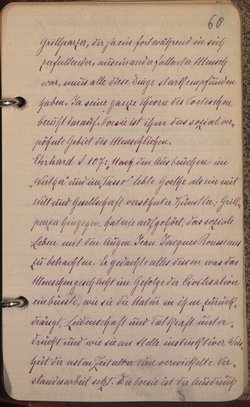 60
Grillparzer, der ja ein fortwährend in sich
zerfallender, auseinanderfallender Mensch
war, muss alle diese Dinge stark empfunden
haben. Ja seine ganze Theorie des Poetischen
beruht darauf. Poesie ist ihm das sozial ver-
pönte Gebiet des Menschlichen.
Ehrhard S 107: "Nach den Ausbrüchen im
und im lebte Goethe als ein mit
Welt und Gesellschaft versöhnter Künstler; Grill-
parzer hingegen hat nie aufgehört, das soziale
Leben mit den Augen Jean Jacques Rousseaus
zu betrachten. Er gedachte alles dessen was das
Menschengeschlecht im Gefolge der Civilisation
einbüsste, wie sie die Natur in ihm zurück-
drängt, Leidenschaft und Tatkraft unter-
drückt und wie sie an Stelle instinktiver
der ersten Zeitalter eine verwickelte Ver-
standesarbeit setzt. Die Poesie ist der Ausdruck